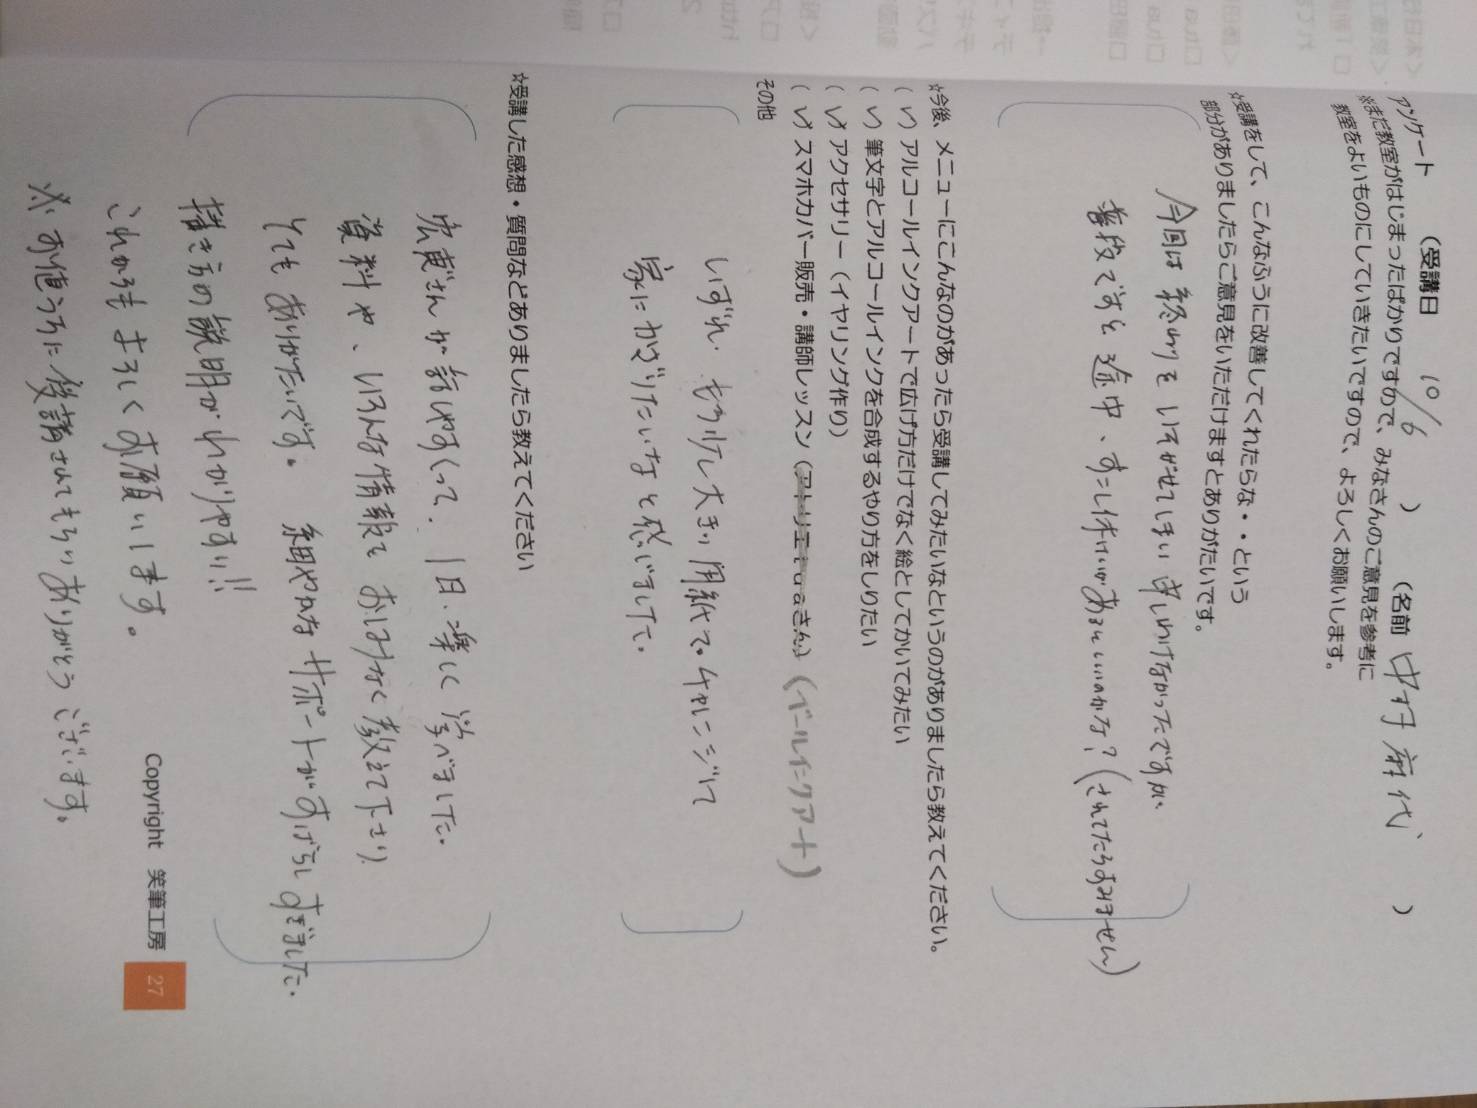 アンケート　（受講日　10/6　）　（名前　中村 麻代　）
※まだ教室がはじまったばかりですので、みなさんのご意見を参考に
教室をよいものにしていきたいですので、よろしくお願いします。
☆受講をして、こんなふうに改善してくれたらな・・という
部分がありましたらご意見をいただけますとありがたいです。
今回は 終わりを いそがせてしまい 申しわけなかったですが、
普段ですと 途中、すこし休けいがあるといいのかな？（されてたらすみません）
☆今後、メニューにこんなのがあったら受講してみたいなというのがありましたら教えてください。
（✓）アルコールインクアートで広げ方だけでなく絵としてかいてみたい
（✓）筆文字とアルコールインクを合成するやり方をしりたい
（✓）アクセサリー（イヤリング作り）
（✓）スマホカバー販売・講師レッスン（さん）（ベールインクアート）
その他
いずれ、もう少し大きい用紙で。チャレンジして
家にかざりたいなと感じました。
☆受講した感想・質問などありましたら教えてください
さんが話しやすくって、1日、楽しく学べました。
資料や、いろんな情報を おしみなく教えて下さり
とてもありがたいです。 細やかなサポートがすばらしすぎました。
描き方の説明がわかりやすい!!
これからもよろしくお願いします。
※お値うちに受講させてもらいありがとうございます。
Copyright　笑筆工房　27